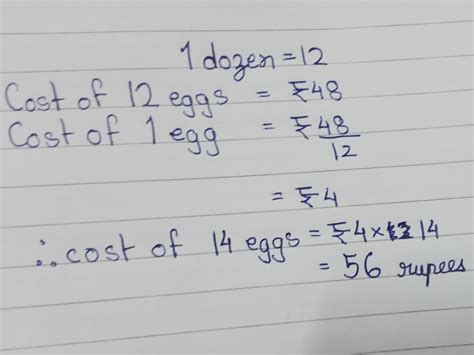 1 dozen = 12
Cost of 12 eggs = ₹48
Cost of 1 egg = ₹48/12
= ₹4
∴ cost of 14 eggs = ₹4 × 14
= 56 rupees